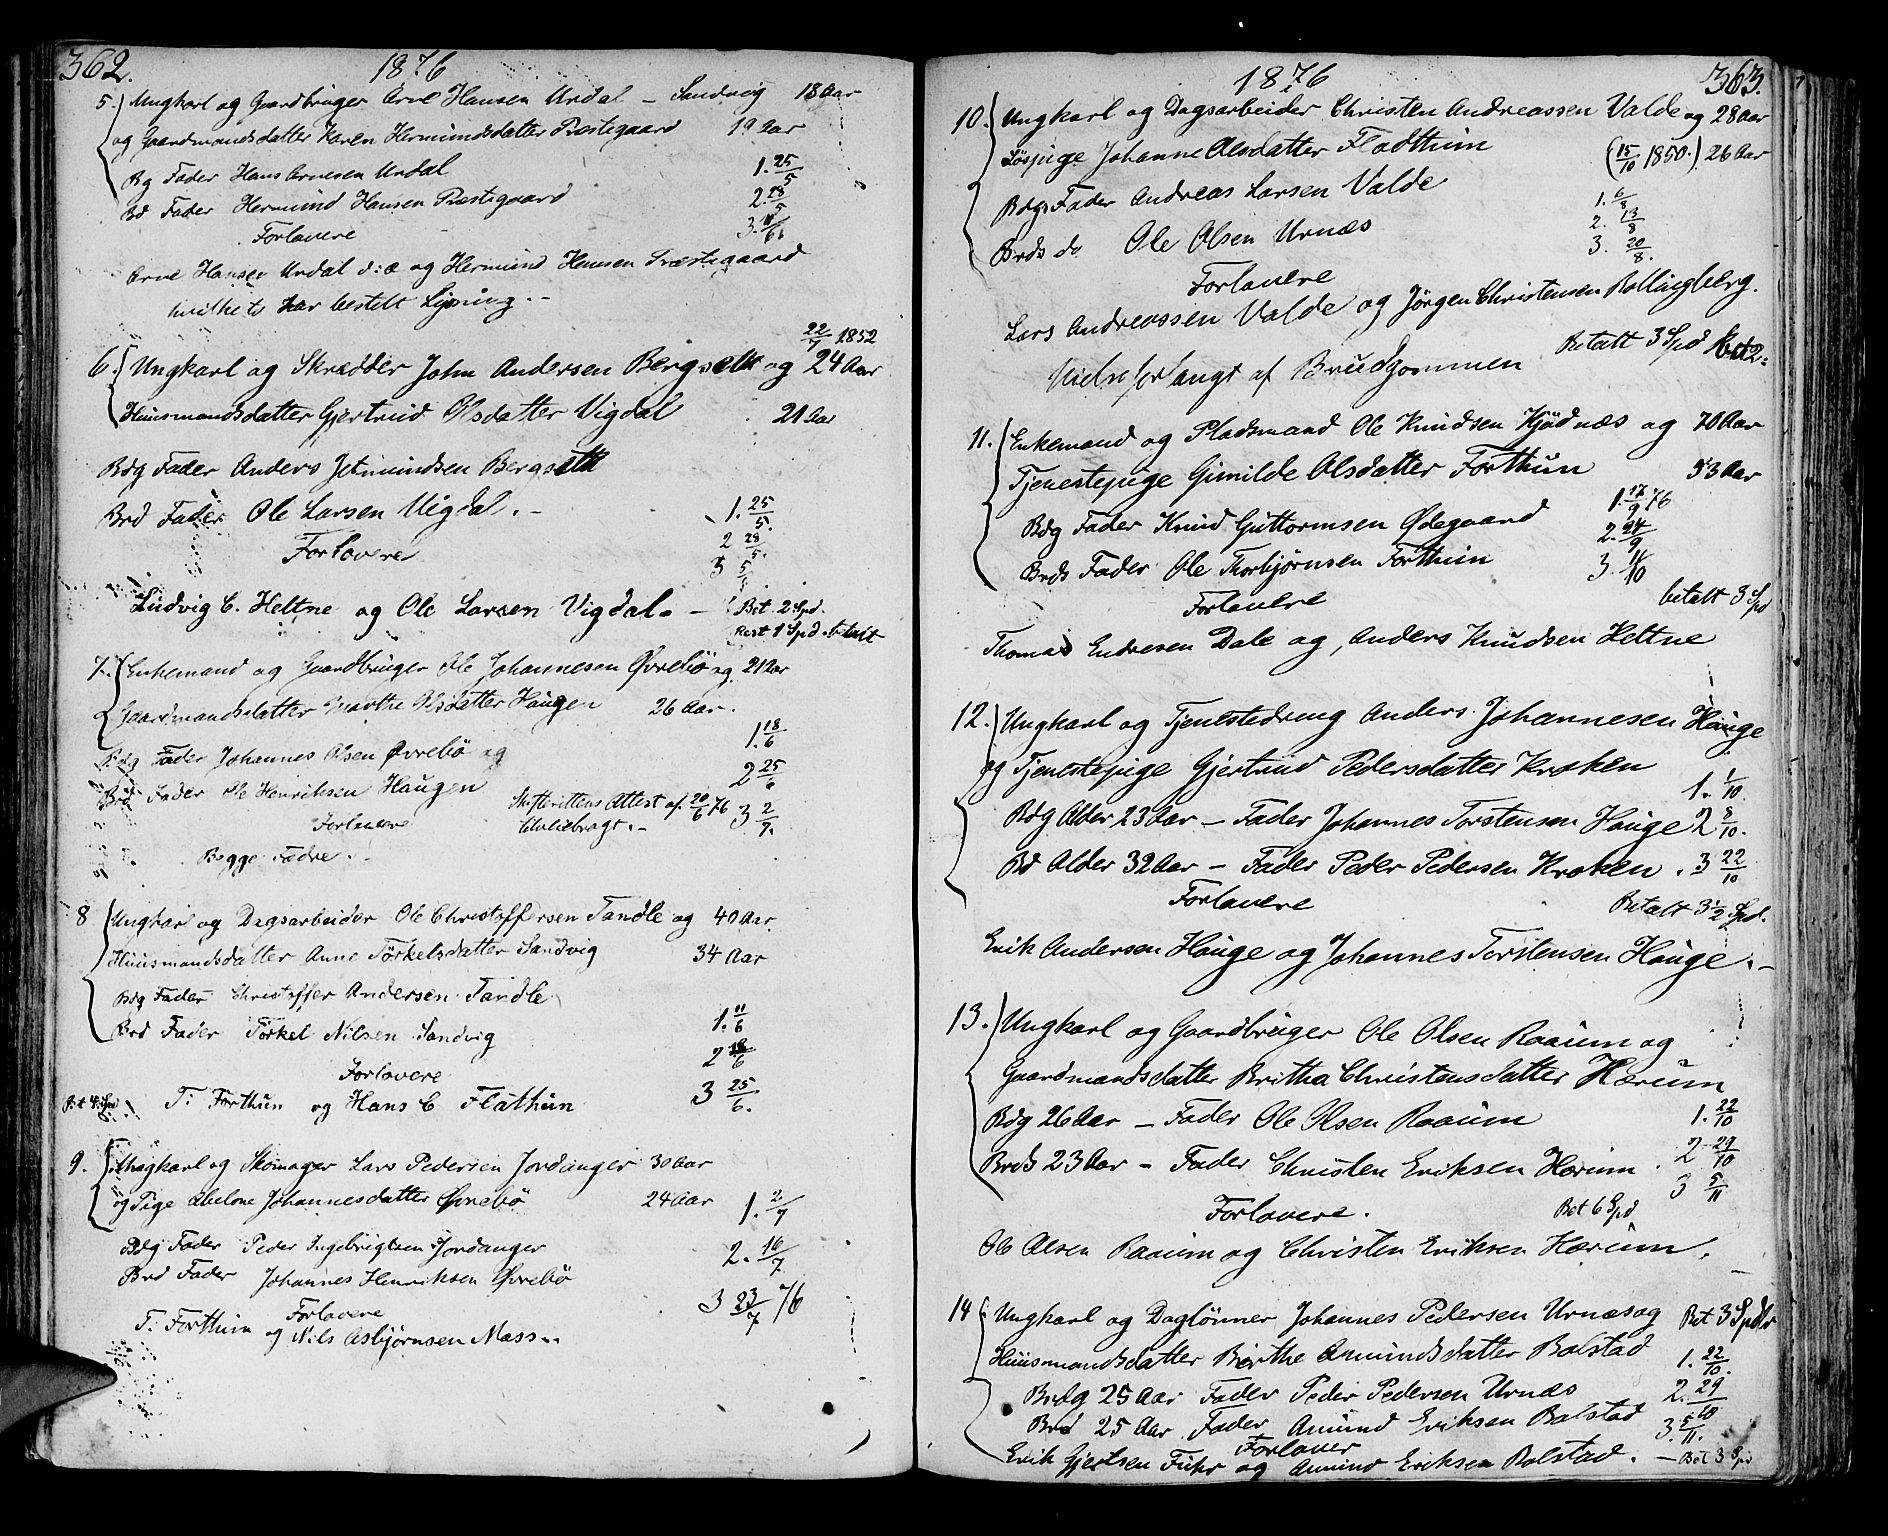 362.
1876
5. Ungkarl og Gaardbruger Arne Hansen Urdal – Sandvig 18 Aar
og Gaardmandsdatter Karen Hermundsdatter Præstegaard 19 Aar
Bg Fader Hans Arnesen Urdal 1. 25/5
Bd Fader Hermund Hansen Præstegaard 2. 28/5
Forlovere 3. /6
Arne Hansen Urdal d: æ og Hermund Hansen Præstegaard
har bestilt Lysning. –
22/7 1852
6. Ungkarl og Skrædder John Andersen Bergsett og 24 Aar
Huusmandsdatter Gjertrud Olsdatter Vigdal 21 Aar
Bdg Fader Anders Jetmundsen Bergsett
Brd Fader Ole Larsen Vigdal. – 1. 25/5.
Forlovere 2 28/5.
3 5/
Ludvig C. Heltne og Ole Larsen Vigdal. – Bet. 2 Spd.
Rest 1 Spd. betalt
7. Enkemand og Gaardbruger Ole Johannesen Øvrebö og 21 Aar
Gaardmandsdatter Marthe Olsdatter Haugen 26 Aar.
Bdg Fader Johannes Olsen Øvrebö og 1. 18/6
Brd Fader Ole Henriksen Haugen 2 25/6
Skifterettens Attest af 20/6 76 3 2/7.
Forlovere
Begge Fædre. –
8 Ungkar og Dagsarbeider Ole Christoffersen Tandle og 40 Aar.
Huusmandsdatter Anne Törkelsdatter Sandvig 34 Aar
Bdg Fader Christoffer Andersen Tandle
Brd Fader Törkel Nilsen Sandvig 1. 11/6
Forlovere 2 18/6
Bet 4 Spd T: Forthun og Hans C Flathun 3 25/6.
9. Ungkarl og Skomager Lars Pedersen Jordanger 30 Aar
og Pige Abelone Johannesdatter Øvrebö 24 Aar 1. 2/7
Bdg Fader Peder Ingebrigtsen Jordanger 2. 16/7
Brd Fader Johannes Henriksen Øvrebö
Forlovere 3 23/7 76
T: Forthun og Nils Asbjørnsen Mass..
363.
1876
10. Ungkarl og Dagsarbeider Christen Andreassen Valde og 28 Aar
Löspige Johanne Olsdatter Fladthun (15/10 1850.) 26 Aar
Bdgs Fader Andreas Larsen Valde 1. 6/8
Brds do Ole Olsen Urnæs 2. 13/8
3. 20/8.
Forlovere
Lars Andreassen Valde og Jörgen Christensen Bollingberg.
Betalt 3 Spd
forlangt af Brudgommen
11. Enkemand og Pladsmand Ole Knudsen Kjödnæs og 70 Aar
Tjenestepige Gunilde Olsdatter Forthun 53 Aar
Bdg Fader Knud Guttormsen Ødegaard 1. 17/9 76
2. 24/9
Brds Fader Ole Thorbjørnsen Forthun 3. /10
Forlovere betalt 3 Spd
Thomas Endresen Dale og Anders Knudsen Heltne
12. Ungkarl og Tjenestedreng Anders Johannesen Hauge
og Tjenestepige Gjertrud Pedersdatter Kroken
1. 1/10.
Bdg Alder 23 Aar – Fader Johannes Torstensen Hauge 2 8/10.
Bd Alder 32 Aar – Fader Peder Pedersen Kroken. 3 22/10
Forlovere Betalt 3 1/2 Spd.
Erik Andersen Hauge og Johannes Torstensen Hauge. –
13. Ungkarl og Gaardbruger Ole Olsen Raaum og
Gaardmandsdatter Britha Christensdatter Hærum
Bdg 26 Aar – Fader Ole Olsen Raaum 1. 22/10
Brds 23 Aar – Fader Christen Eriksen Hærum. 2 29/10
3 5/11
Forlovere. Bet 6 Spd
Ole Olsen Raaum og Christen Eriksen Hærum. –
14 Ungkarl og Daglönner Johannes Pedersen Urnæs og Bet 3 Spdlr
Huusmandsdatter Birthe Amundsdatter Bolstad 1. 22/10.
Brdg 25 Aar Fader Peder Pedersen Urnæs 2. 29/10
Brd 25 Aar Fader Amund Eriksen Bolstad 3. 5/11.
Forlover
Erik Gjertsen Fuhr og Amund Eriksen Bolstad. – Bet 3 Spd